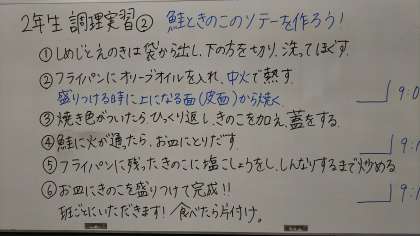 2年生 調理実習② 鮭ときのこのソテーを作ろう!
①しめじとえのきは袋から出し、下の方を切り、洗ってほぐす.
②フライパンにオリーブオイルを入れ、中火で熱す.
盛りつける時に上になる面(皮面)から焼く.
③焼き色がついたらひっくり返し、きのこを加え、蓋をする.
④鮭に火が通たら、お皿にとりだす.
⑤フライパンに残ったきのこに塩こしょうをし、しんなりするまで炒める
⑥お皿にきのこを盛りつけて完成!!
班ごとにいただきます!/食べたら片付け。